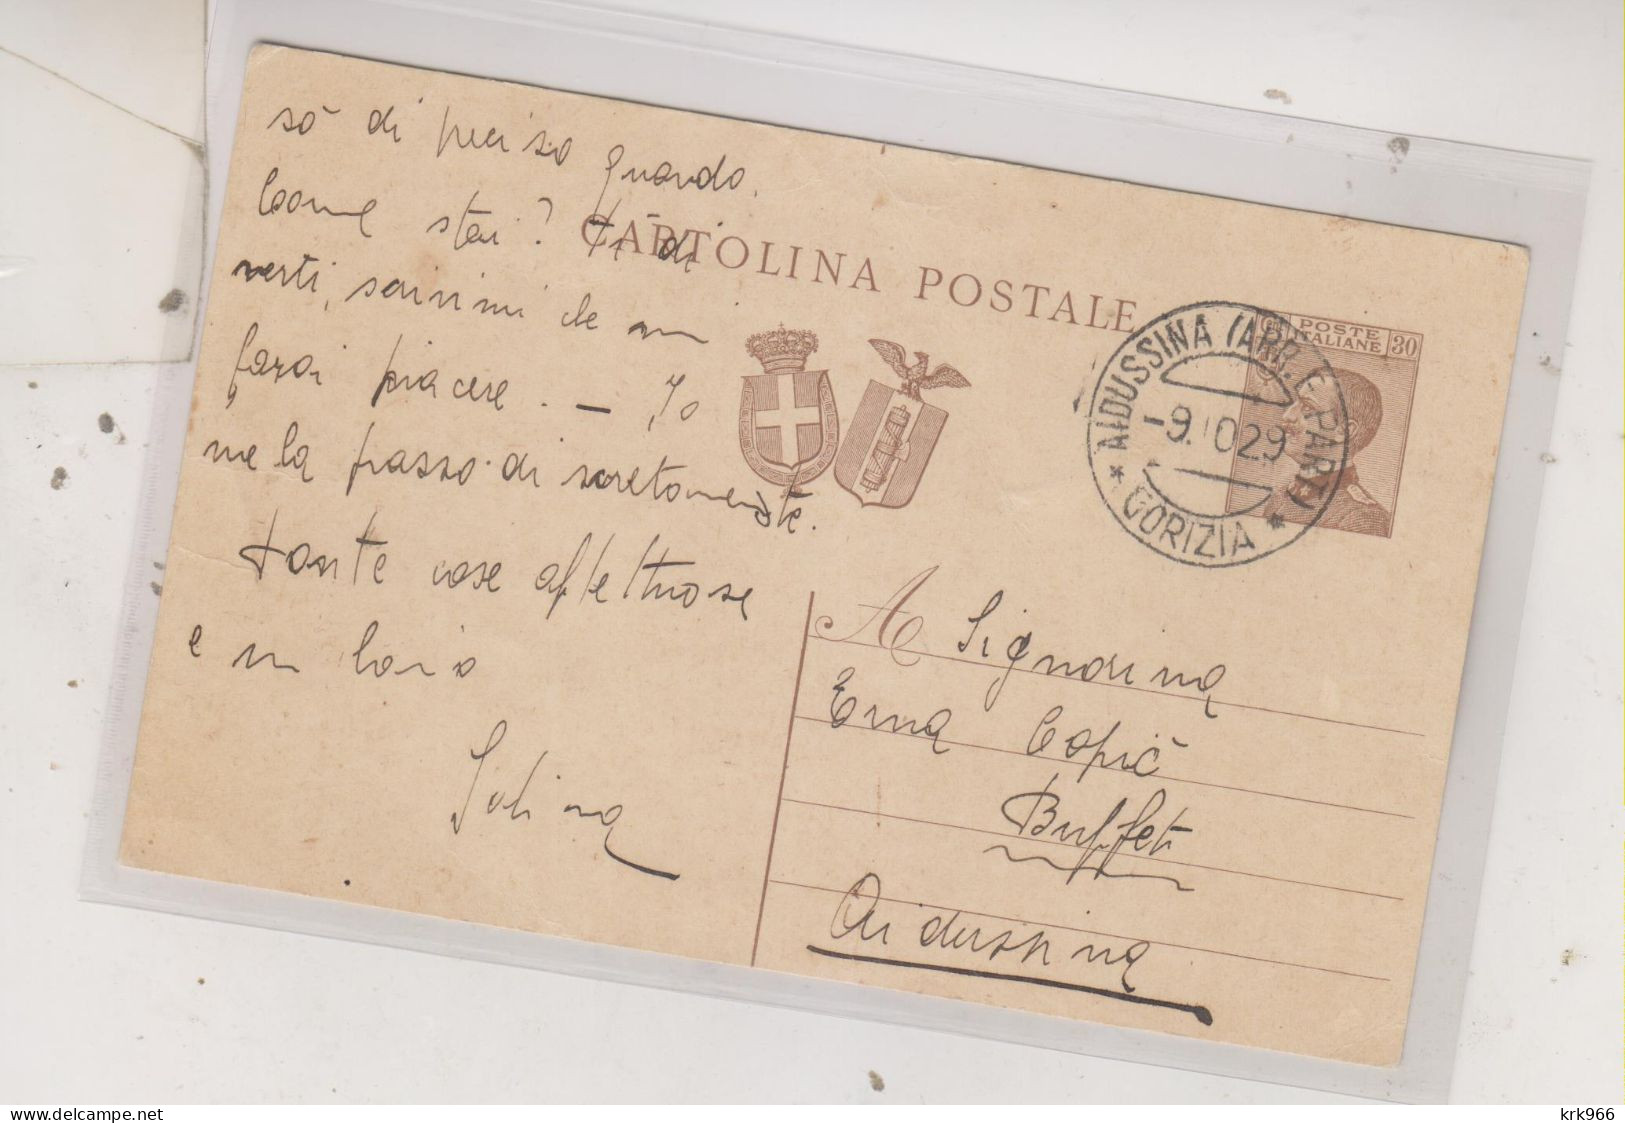 sò di preciso quando.
Come stai? Ti di
verti, scrivimi che mi
farai piacere. — Io
me la passo discretamente.
Tante cose affettuose
e un bacio
CARTOLINA POSTALE
POSTE
ITALIANE
30
AIDUSSINA (ARR. E PART.)
-9.1029
* GORIZIA *
A Signorina
Erna Copič
Buffet
Aidussina
krk966